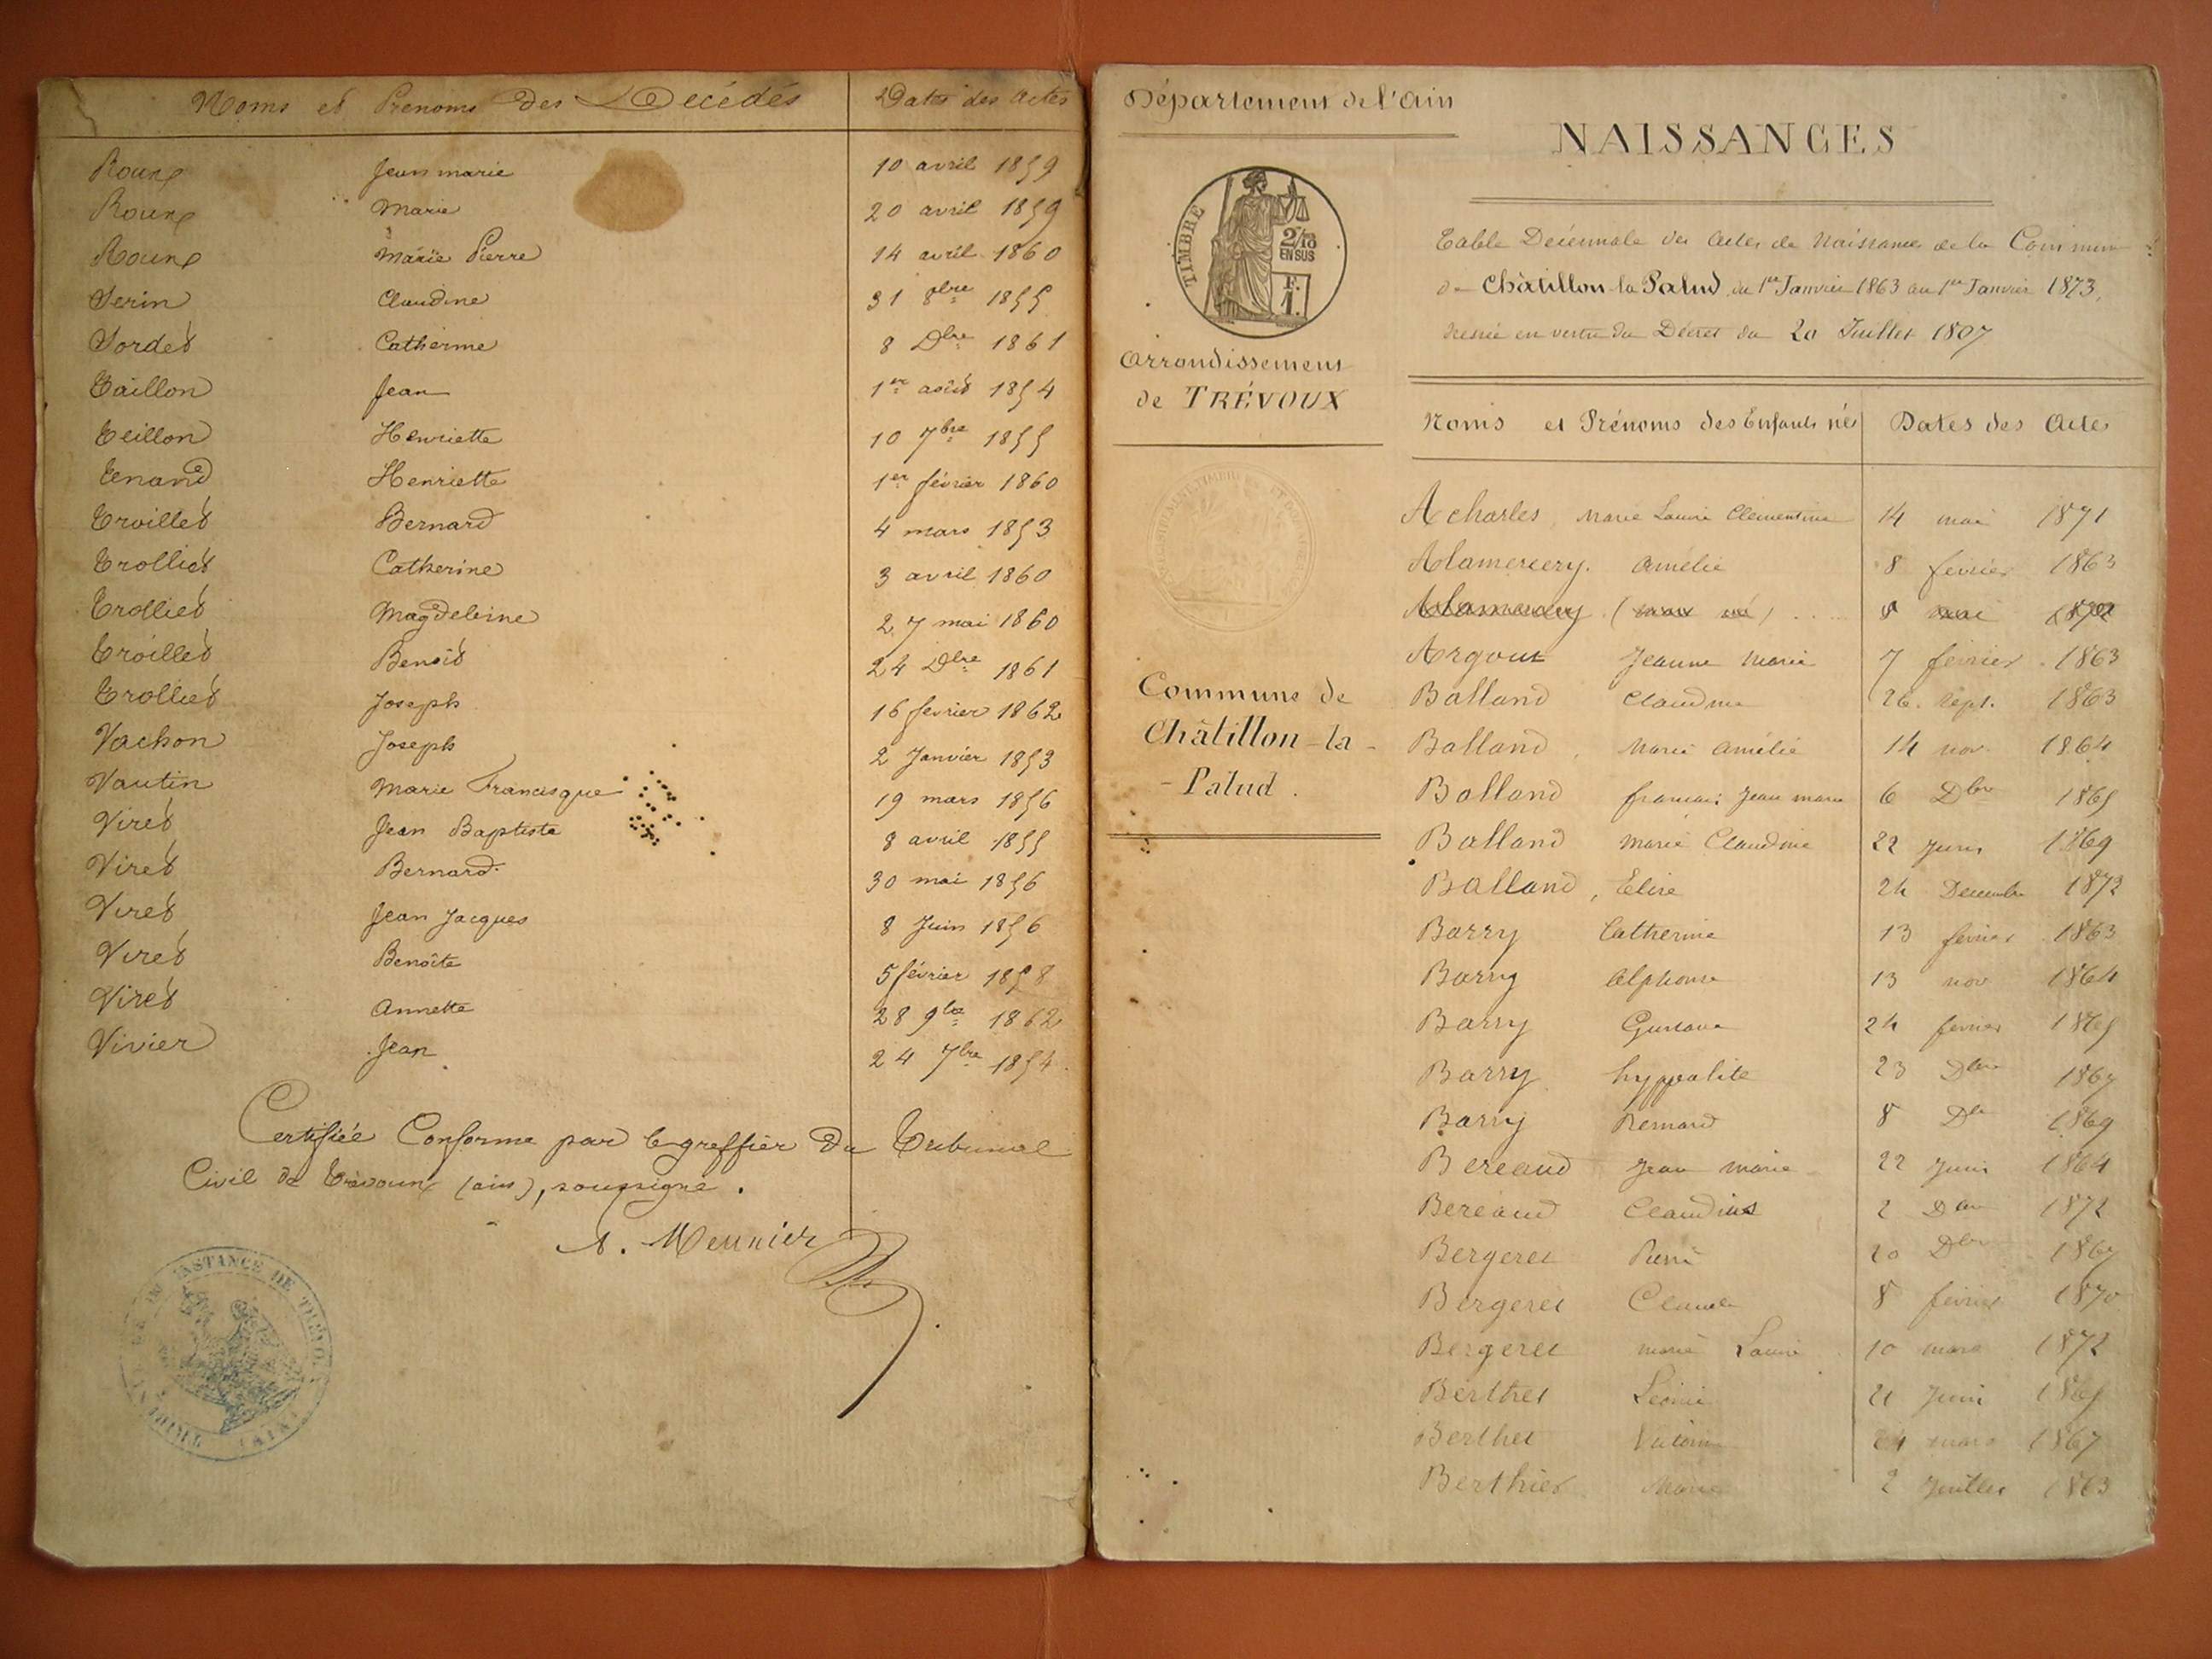 Noms et Prenoms des Décédés Dates des Actes
Roux Jean marie 10 avril 1859
Roux Marie 20 avril 1859
Roux Marie Pierre 14 avril 1860
Serin Claudine 31 8bre 1855
Sordet Catherine 8 Dbre 1861
Taillon Jean 1er août 1854
Teillon Henriette 10 7bre 1855
Tenand Henriette 1er février 1860
Troillet Bernard 4 mars 1853
Trolliet Catherine 3 avril 1860
Trolliet Magdeleine 27 mai 1860
Troillet Benoît 24 Dbre 1861
Trolliet Joseph 16 fevrier 1862
Vachon Joseph 2 Janvier 1853
Vautin Marie Francisque 19 mars 1856
Viret Jean Baptiste 8 avril 1855
Viret Bernard 30 mai 1856
Viret Jean Jacques 8 Juin 1856
Viret Benoîte 5 février 1858
Viret Annette 28 9bre 1862
Vivier Jean 24 7bre 1854
Certifiée Conforme par le greffier du Tribunal
Civil de Trévoux (ain), soussigné.
A. Meunier
INSTANCE DE TRÉVOUX
Département de l'Ain
TIMBRE
2/10
EN SUS
F.
1.
Arrondissement
de TRÉVOUX
Commune de
Châtillon-la-
-Palud.
NAISSANCES
Table Décennale des Actes de Naissances de la Commune
de Châtillon-la Palud, du 1er Janvier 1863 au 1er Janvier 1873,
dressée en vertu du Décret du 20 Juillet 1807
Noms et Prénoms des Enfants nés Dates des Actes
Acharles, Marie Laurie Clementine 14 mai 1871
Alamercery. Amélie 8 fevrier 1863
Alamercery (mort né) 8 mai 1872
Argout Jeanne Marie 7 fevrier 1863
Balland Claudine 26. Sept. 1863
Balland, Marie Amélie 14 nov 1864
Balland francois Jean marie 6 Dbre 1865
Balland Marie Claudine 22 Juin 1869
Balland, Elise 24 Decembre 1872
Barry Catherine 13 fevrier 1863
Barry Alphonse 13 nov 1864
Barry Gustave 24 fevrier 1865
Barry hyppolite 23 Dbre 1867
Barry Bernard 8 Dbre 1869
Bereaud Jean marie 22 Juin 1864
Bereaud Claudius 2 Dbre 1872
Bergeret Pierre 20 Dbre 1867
Bergeret Claude 8 fevrier 1870
Bergeret marie Laurie 10 mars 1872
Berthet Leonie 21 Juin 1865
Berthet Victorine 24 mars 1867
Berthier Marie 2 Juillet 1863